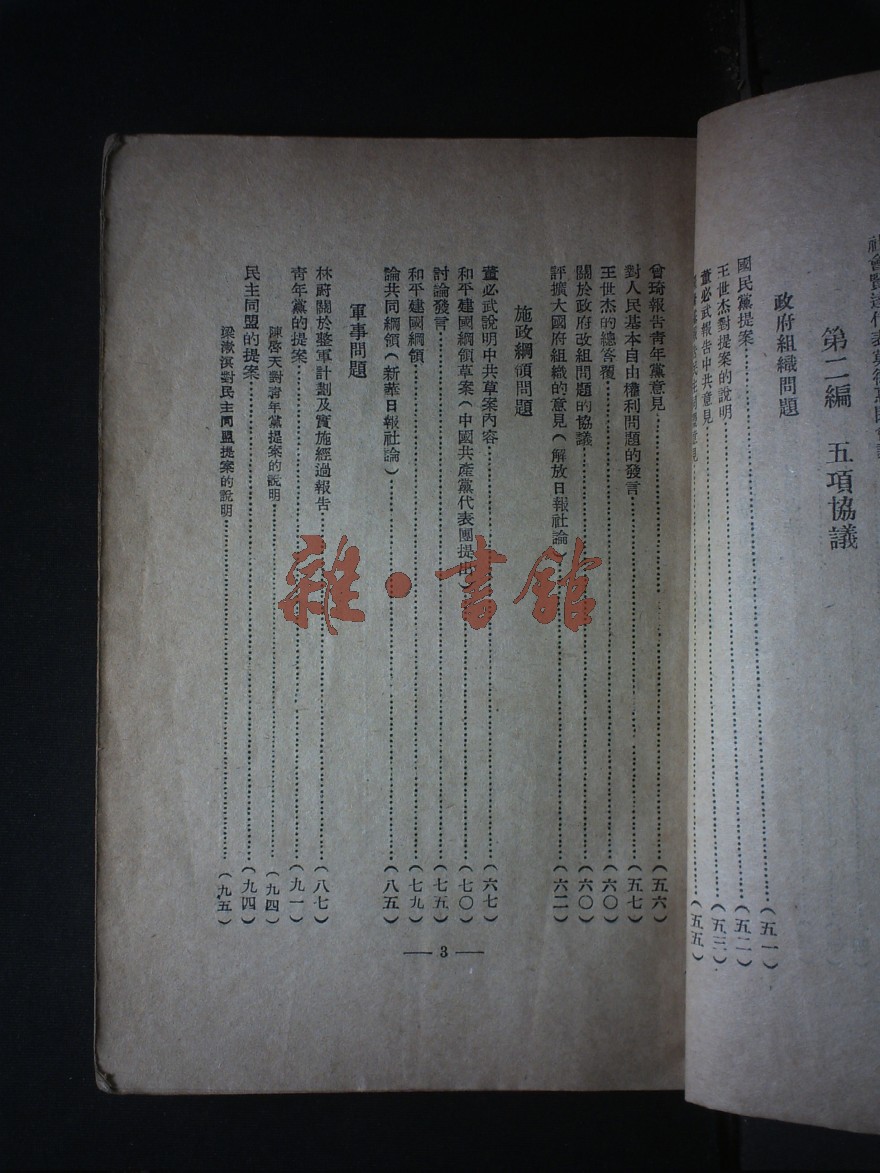 第二編　五項協議
政府組織問題
國民黨提案……(五一)
王世杰對提案的說明……(五二)
董必武報告中共意見……(五三)
意見……(五五)
曾琦報告青年黨意見……(五六)
對人民基本自由權利問題的發言……(五七)
王世杰的總答覆……(六〇)
關於政府改組問題的協議……(六〇)
評擴大國府組織的意見(解放日報社論)……(六二)
施政綱領問題
董必武說明中共草案內容……(六七)
和平建國綱領草案(中國共產黨代表團提出)……(七〇)
討論發言……(七五)
和平建國綱領……(七九)
論共同綱領(新華日報社論)……(八五)
軍事問題
林蔚關於整軍計劃及實施經過報告……(八七)
青年黨的提案……(九一)
陳啓天對青年黨提案的說明……(九四)
民主同盟的提案……(九四)
梁漱溟對民主同盟提案的說明……(九五)
— 3 —
雜·書館